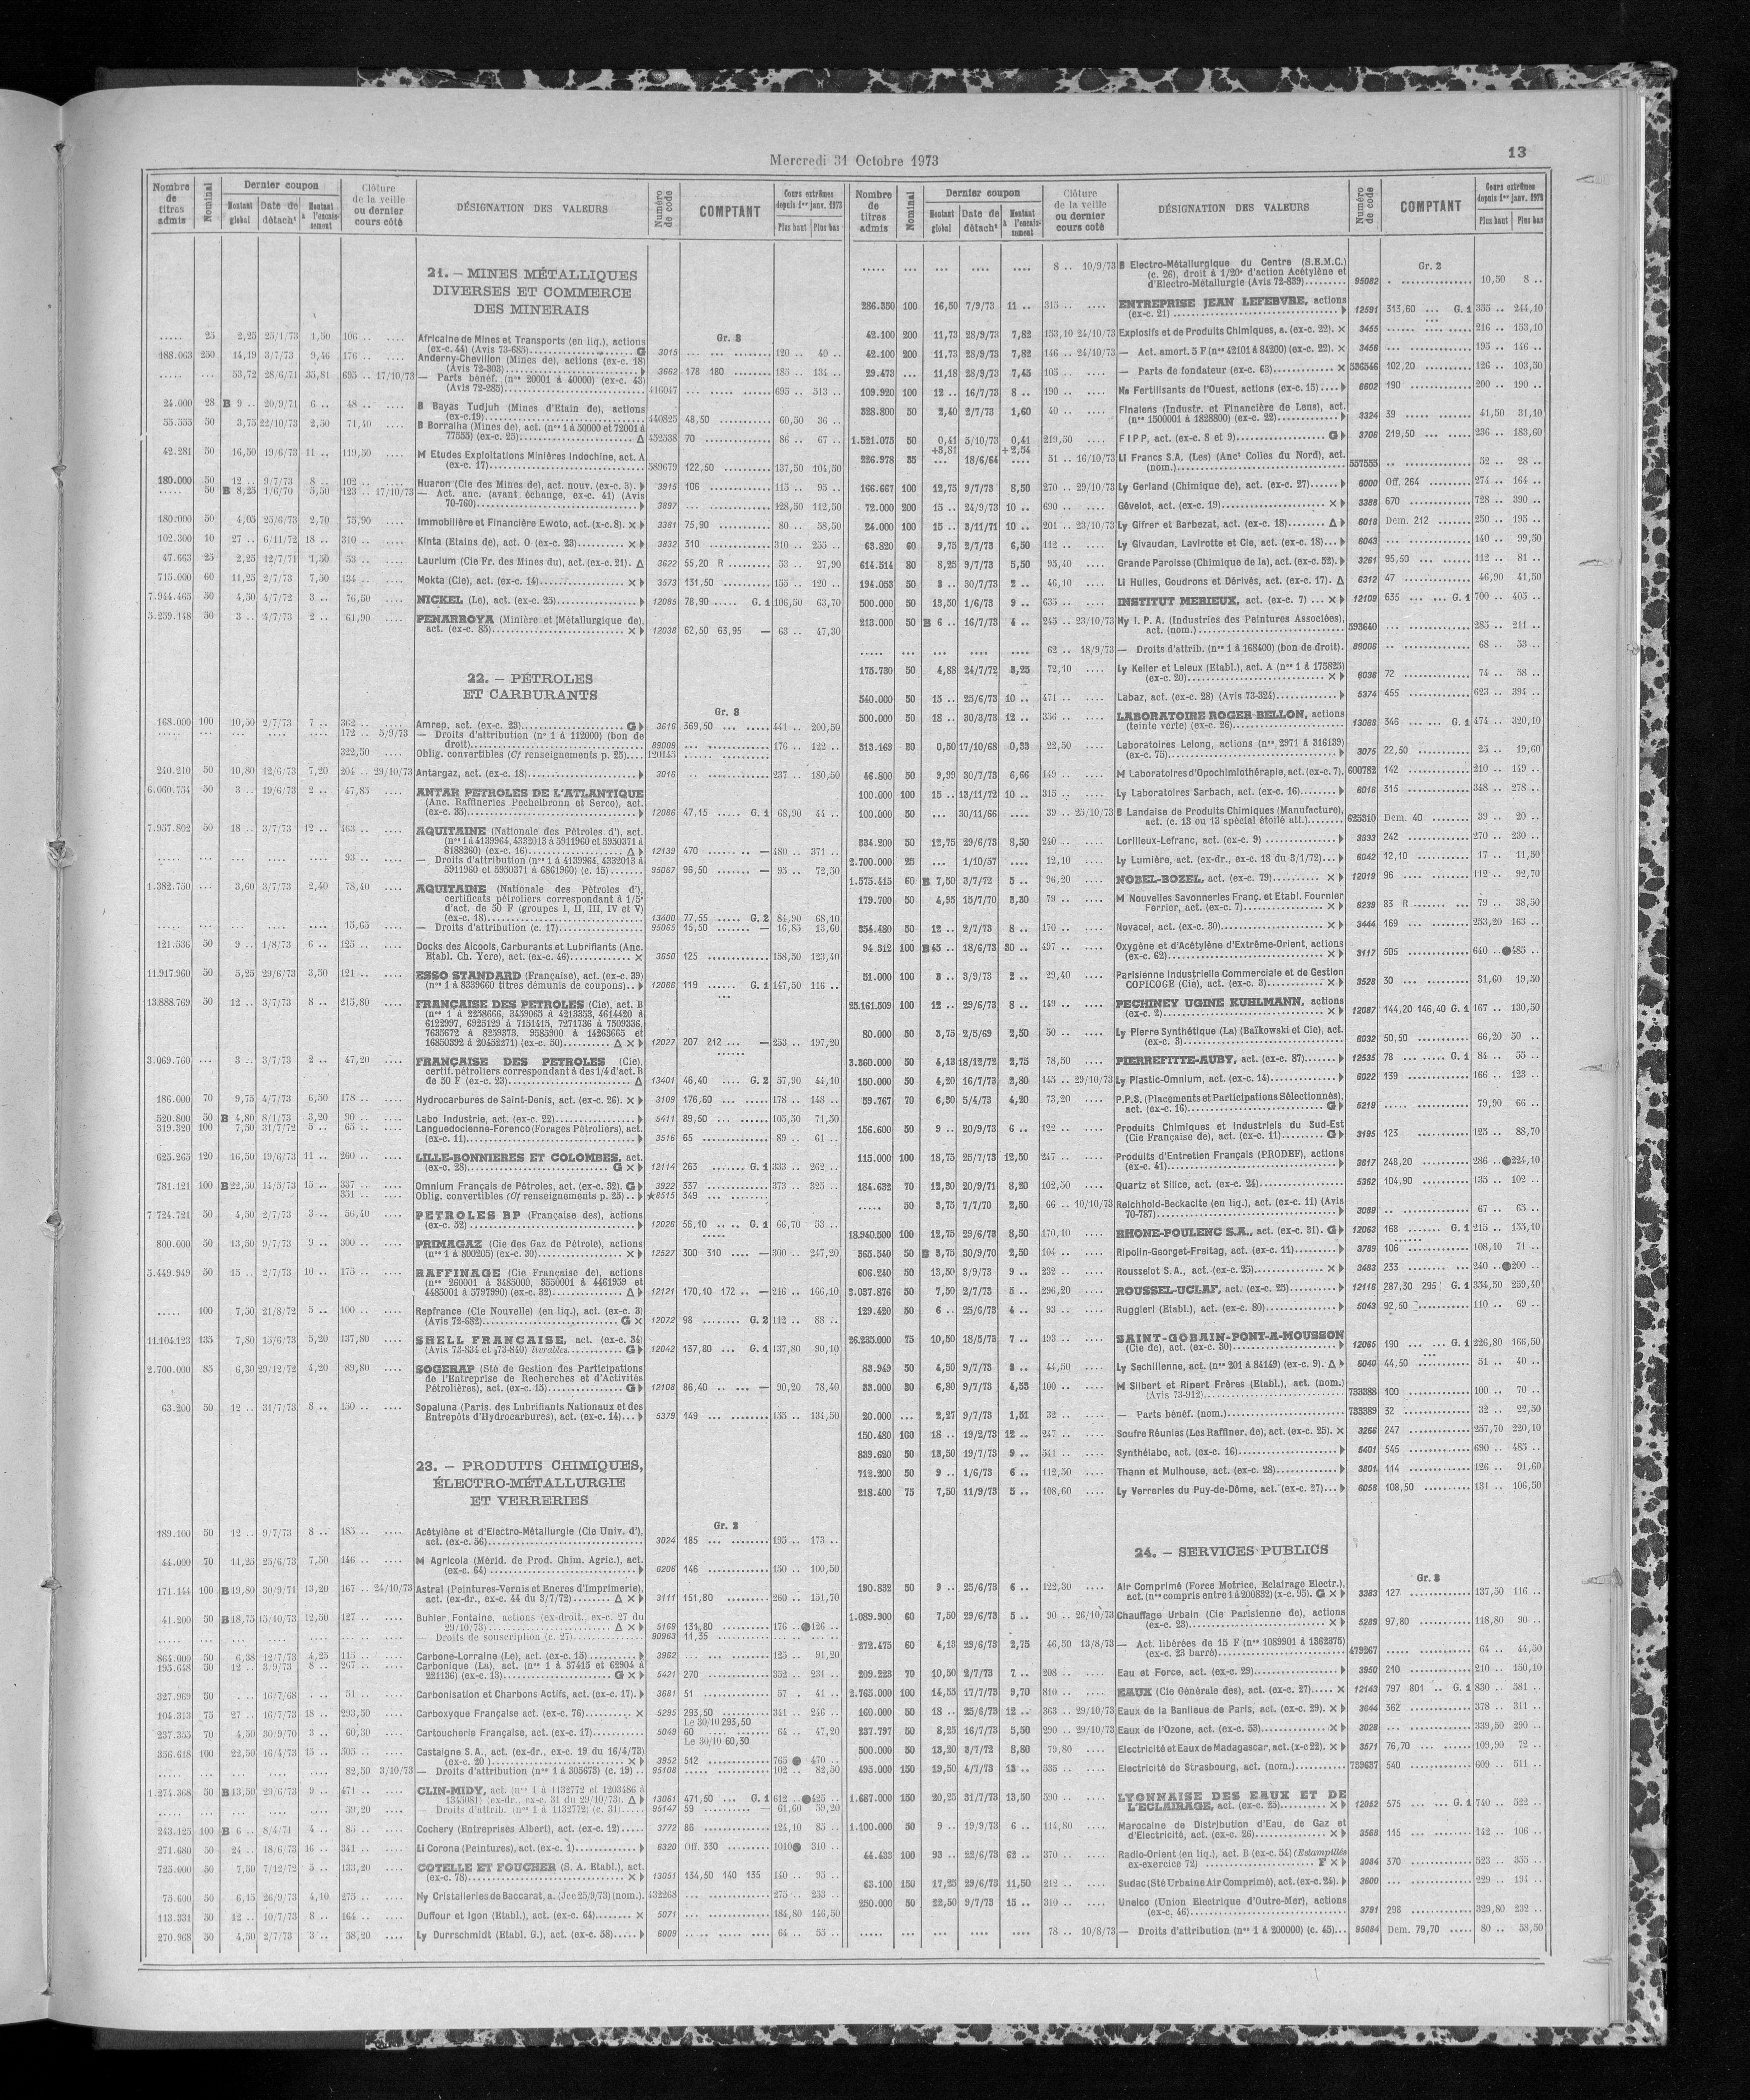 Mercredi 31 Octobre 1973
13
Nombre de titres admis | Nominal | Dernier coupon | Montant global | Date de détacht | Montant à l'encaissement | Clôture de la veille ou dernier cours coté | DÉSIGNATION DES VALEURS | Numéro de code | COMPTANT | Cours extrêmes depuis 1er janv. 1973 | Plus haut | Plus bas
21. — MINES MÉTALLIQUES
DIVERSES ET COMMERCE
DES MINERAIS
Gr. 3
..... 25 2,25 25/1/73 1,50 106 .. .... Africaine de Mines et Transports (en liq.), actions
(ex-c. 44) (Avis 73-685) G 3015 ... ... 120 .. 40 ..
188.063 250 14,19 3/7/73 9,46 176 .. .... Anderny-Chevillon (Mines de), actions (ex-c. 18)
(Avis 72-303) 3662 178 180 185 .. 134 ..
..... ... 53,72 28/6/71 35,81 695 .. 17/10/73 — Parts bénéf. (nos 20001 à 40000) (ex-c. 43)
(Avis 72-285) 416047 ... 695 .. 513 ..
24.000 28 B 9 .. 20/9/71 6 .. 48 .. .... B Bayas Tudjuh (Mines d'Etain de), actions
(ex-c.19) 440825 48,50 60,50 36 ..
55.555 50 3,75 22/10/73 2,50 71,40 .... B Borralha (Mines de), act. (nos 1 à 50000 et 72001 à
77555) (ex-c. 25) Δ 452538 70 86 .. 67 ..
42.281 50 16,50 19/6/73 11 .. 119,50 .... M Etudes Exploitations Minières Indochine, act. A
(ex-c. 17) 589679 122,50 137,50 104,50
180.000 50 12 .. 9/7/73 8 .. 102 .. .... Huaron (Cie des Mines de), act. nouv. (ex-c. 3). 3915 106 115 .. 95 ..
..... 50 B 8,25 1/6/70 5,50 123 .. 17/10/73 — Act. anc. (avant échange, ex-c. 41) (Avis
70-760) 3897 ... 128,50 112,50
180.000 50 4,05 25/6/73 2,70 75,90 .... Immobilière et Financière Ewoto, act. (x-c. 8). × 3381 75,90 80 .. 58,50
102.300 10 27 .. 6/11/72 18 .. 310 .. .... Kinta (Etains de), act. O (ex-c. 23) × 3832 310 310 .. 255 ..
47.663 25 2,25 12/7/71 1,50 53 .. .... Laurium (Cie Fr. des Mines du), act. (ex-c. 21). Δ 3622 55,20 R 53 .. 27,90
715.000 60 11,25 2/7/73 7,50 134 .. .... Mokta (Cie), act. (ex-c. 14) × 3573 131,50 155 .. 120 ..
7.944.465 50 4,50 4/7/72 3 .. 76,50 .... NICKEL (Le), act. (ex-c. 25) 12085 78,90 G. 1 106,50 63,70
5.259.148 50 3 .. 4/7/73 2 .. 61,90 .... PENARROYA (Minière et Métallurgique de),
act. (ex-c. 85) × 12038 62,50 63,95 — 63 .. 47,30
22. — PÉTROLES
ET CARBURANTS
Gr. 3
168.000 100 10,50 2/7/73 7 .. 362 .. .... Amrep, act. (ex-c. 23) G 3616 369,50 441 .. 200,50
172 .. 5/9/73 — Droits d'attribution (no 1 à 112000) (bon de
droit) 89009 ... 176 .. 122 ..
322,50 .... Oblig. convertibles (Cf renseignements p. 25) 120145
240.210 50 10,80 12/6/73 7,20 204 .. 29/10/73 Antargaz, act. (ex-c. 18) 3016 .. 237 .. 180,50
6.060.754 50 3 .. 19/6/73 2 .. 47,85 .... ANTAR PETROLES DE L'ATLANTIQUE
(Anc. Raffineries Pechelbronn et Serco), act.
(ex-c. 35) 12086 47,15 G. 1 68,90 44 ..
7.957.802 50 18 .. 3/7/73 12 .. 463 .. .... AQUITAINE (Nationale des Pétroles d'), act.
(nos 1 à 4139964, 4332013 à 5911960 et 5950371 à
8188260) (ex-c. 16) Δ 12139 470 — 480 .. 371 ..
93 .. .... — Droits d'attribution (nos 1 à 4139964, 4332013 à
5911960 et 5950371 à 6861960) (c. 15) 95067 95,50 — 95 .. 72,50
1.382.750 ... 3,60 3/7/73 2,40 78,40 .... AQUITAINE (Nationale des Pétroles d'),
certificats pétroliers correspondant à 1/5e
d'act. de 50 F (groupes I, II, III, IV et V)
(ex-c. 18) 13400 77,55 G. 2 84,90 68,10
15,65 .... — Droits d'attribution (c. 17) 95065 15,50 — 16,85 13,60
121.536 50 9 .. 1/8/73 6 .. 125 .. .... Docks des Alcools, Carburants et Lubrifiants (Anc.
Etabl. Ch. Ycre), act. (ex-c. 46) × 3650 125 158,50 123,40
11.917.960 50 5,25 29/6/73 3,50 121 .. .... ESSO STANDARD (Française), act. (ex-c. 39)
(nos 1 à 8339660 titres démunis de coupons) 12066 119 G. 1 147,50 116 ..
13.888.769 50 12 .. 3/7/73 8 .. 215,80 .... FRANÇAISE DES PETROLES (Cie), act. B
(nos 1 à 2258666, 3459065 à 4213353, 4614420 à
6122997, 6925129 à 7151415, 7271736 à 7509336,
7635672 à 8259373, 9585900 à 14263665 et
16850392 à 20452271) (ex-c. 50) Δ × 12027 207 212 — 253 .. 197,20
3.069.760 ... 3 .. 3/7/73 2 .. 47,20 .... FRANÇAISE DES PETROLES (Cie),
certif. pétroliers correspondant à des 1/4 d'act. B
de 50 F (ex-c. 23) Δ 13401 46,40 G. 2 57,90 44,10
186.000 70 9,75 4/7/73 6,50 178 .. .... Hydrocarbures de Saint-Denis, act. (ex-c. 26). × 3109 176,60 178 .. 148 ..
520.800 50 B 4,80 8/1/73 3,20 90 .. .... Labo Industrie, act. (ex-c. 22) 5411 89,50 105,50 71,50
319.320 100 7,50 31/7/72 5 .. 65 .. .... Languedocienne-Forenco (Forages Pétroliers), act.
(ex-c. 11) 3516 65 89 .. 61 ..
625.265 120 16,50 19/6/73 11 .. 260 .. .... LILLE-BONNIERES ET COLOMBES, act.
(ex-c. 28) G × 12114 263 G. 1 333 .. 262 ..
781.121 100 B 22,50 14/5/73 15 .. 337 .. .... Omnium Français de Pétroles, act. (ex-c. 32). G 3922 337 373 .. 325 ..
351 .. .... Oblig. convertibles (Cf renseignements p. 25) ★8515 349
7.724.721 50 4,50 2/7/73 3 .. 56,40 .... PETROLES BP (Française des), actions
(ex-c. 52) 12026 56,10 G. 1 66,70 53 ..
800.000 50 13,50 9/7/73 9 .. 300 .. .... PRIMAGAZ (Cie des Gaz de Pétrole), actions
(nos 1 à 800205) (ex-c. 30) × 12527 300 310 — 300 .. 247,20
5.449.949 50 15 .. 2/7/73 10 .. 175 .. .... RAFFINAGE (Cie Française de), actions
(nos 260001 à 3485000, 3550001 à 4461959 et
4485001 à 5797990) (ex-c. 32) Δ 12121 170,10 172 — 216 .. 166,10
..... 100 7,50 21/8/72 5 .. 100 .. .... Repfrance (Cie Nouvelle) (en liq.), act. (ex-c. 3)
(Avis 72-682) G × 12072 98 G. 2 112 .. 88 ..
11.104.123 135 7,80 15/6/73 5,20 137,80 .... SHELL FRANÇAISE, act. (ex-c. 34)
(Avis 73-834 et 73-840) livrables G 12042 137,80 G. 1 137,80 90,10
2.700.000 85 6,30 29/12/72 4,20 89,80 .... SOGERAP (Sté de Gestion des Participations
de l'Entreprise de Recherches et d'Activités
Pétrolières), act. (ex-c. 15) G 12108 86,40 — 90,20 78,40
63.200 50 12 .. 31/7/73 8 .. 150 .. .... Sopaluna (Paris. des Lubrifiants Nationaux et des
Entrepôts d'Hydrocarbures), act. (ex-c. 14) 5379 149 155 .. 134,50
23. — PRODUITS CHIMIQUES,
ÉLECTRO-MÉTALLURGIE
ET VERRERIES
Gr. 2
189.100 50 12 .. 9/7/73 8 .. 185 .. .... Acétylène et d'Electro-Métallurgie (Cie Univ. d'),
act. (ex-c. 56) 3024 185 195 .. 173 ..
44.000 70 11,25 25/6/73 7,50 146 .. .... M Agricola (Mérid. de Prod. Chim. Agric.), act.
(ex-c. 64) 6206 146 150 .. 100,50
171.144 100 B 19,80 30/9/71 13,20 167 .. 24/10/73 Astral (Peintures-Vernis et Encres d'Imprimerie),
act. (ex-dr., ex-c. 44 du 3/7/72) Δ × 3111 151,80 260 .. 151,70
41.200 50 B 18,75 15/10/73 12,50 127 .. .... Buhler Fontaine, actions (ex-droit., ex-c. 27 du
29/10/73) Δ × 5169 134,80 176 .. ●126 ..
— Droits de souscription (c. 27) 90963 11,35
864.000 50 6,38 12/7/73 4,25 115 .. .... Carbone-Lorraine (Le), act. (ex-c. 15) 3962 ... 125 .. 91,20
195.648 50 12 .. 3/9/73 8 .. 267 .. .... Carbonique (La), act. (nos 1 à 37415 et 62904 à
221136) (ex-c. 13) G × 5421 270 352 .. 231 ..
327.969 50 ... 16/7/68 ... 51 .. .... Carbonisation et Charbons Actifs, act. (ex-c. 17). 3681 51 57 . 41 ..
104.313 75 27 .. 16/7/73 18 .. 293,50 .... Carboxyque Française act. (ex-c. 76) × 5295 293,50 341 .. 246 ..
Le 30/10 293,50
237.355 70 4,50 30/9/70 3 .. 60,30 .... Cartoucherie Française, act. (ex-c. 17) 5049 60 64 .. 47,20
Le 30/10 60,50
356.618 100 22,50 16/4/73 15 .. 505 .. .... Castaigne S.A., act. (ex-dr., ex-c. 19 du 16/4/73)
(ex-c. 20) × 3952 512 765 ● 470 ..
82,50 3/10/73 — Droits d'attribution (nos 1 à 305673) (c. 19) 95108 102 .. 82,50
1.274.368 50 B 13,50 29/6/73 9 .. 471 .. .... CLIN-MIDY, act. (nos 1 à 1132772 et 1203486 à
1345081) (ex-dr., ex-c. 31 du 29/10/73). Δ 13061 471,50 G. 1 612 .. ●425 ..
59,20 .... — Droits d'attrib. (nos 1 à 1132772) (c. 31) 95147 59 — 61,60 59,20
243.125 100 B 6 .. 8/4/71 4 .. 85 .. .... Cochery (Entreprises Albert), act. (ex-c. 12) 3772 86 124,10 85 ..
271.680 50 24 .. 18/6/73 16 .. 341 .. .... Li Corona (Peintures), act. (ex-c. 1) 6320 Off. 330 1010● 310 ..
725.000 50 7,50 7/12/72 5 .. 133,20 .... COTELLE ET FOUCHER (S. A. Etabl.), act.
(ex-c. 78) × 13051 134,50 140 135 140 .. 95 ..
75.600 50 6,15 26/9/73 4,10 275 .. .... Ny Cristalleries de Baccarat, a. (Jce 25/9/73) (nom.). 432268 ... 275 .. 253 ..
113.331 50 12 .. 10/7/73 8 .. 164 .. .... Duffour et Igon (Etabl.), act. (ex-c. 64) × 5071 ... 184,80 146,50
270.968 50 4,50 2/7/73 3 .. 58,20 .... Ly Durrschmidt (Etabl. G.), act. (ex-c. 58) 6009 ... 64 .. 55 ..
Nombre de titres admis | Nominal | Dernier coupon | Montant global | Date de détacht | Montant à l'encaissement | Clôture de la veille ou dernier cours coté | DÉSIGNATION DES VALEURS | Numéro de code | COMPTANT | Cours extrêmes depuis 1er janv. 1973 | Plus haut | Plus bas
Gr. 2
..... ... ... .... .... 8 .. 10/9/73 B Electro-Métallurgique du Centre (S.E.M.C.)
(c. 26), droit à 1/20e d'action Acétylène et
d'Electro-Métallurgie (Avis 72-839) 95082 . 10,50 8 ..
286.350 100 16,50 7/9/73 11 .. 315 .. .... ENTREPRISE JEAN LEFEBVRE, actions
(ex-c. 21) 12591 313,60 G. 1 355 .. 244,10
42.100 200 11,73 28/9/73 7,82 153,10 24/10/73 Explosifs et de Produits Chimiques, a. (ex-c. 22). × 3455 ... 216 .. 153,10
42.100 200 11,73 28/9/73 7,82 146 .. 24/10/73 — Act. amort. 5 F (nos 42101 à 84200) (ex-c. 22). × 3456 ... 195 .. 146 ..
29.473 ... 11,18 28/9/73 7,45 105 .. .... — Parts de fondateur (ex-c. 63) × 536546 102,20 126 .. 103,50
109.920 100 12 .. 16/7/73 8 .. 190 .. .... Ns Fertilisants de l'Ouest, actions (ex-c. 15) 6602 190 200 .. 190 ..
328.800 50 2,40 2/7/73 1,60 40 .. .... Finalens (Industr. et Financière de Lens), act.
(nos 1500001 à 1828800) (ex-c. 22) 3324 39 41,50 31,10
1.521.075 50 0,41 +3,81 5/10/73 0,41 +2,54 219,50 .... F I P P, act. (ex-c. 8 et 9) G 3706 219,50 236 .. 183,60
226.978 35 ... 18/6/64 .... 51 .. 16/10/73 Li Francs S.A. (Les) (Anct Colles du Nord), act.
(nom.) 557555 .. 52 .. 28 ..
166.667 100 12,75 9/7/73 8,50 270 .. 29/10/73 Ly Gerland (Chimique de), act. (ex-c. 27) 6000 Off. 264 274 .. 164 ..
72.000 200 15 .. 24/9/73 10 .. 690 .. .... Gévelot, act. (ex-c. 19) × 3388 670 728 .. 390 ..
24.000 100 15 .. 3/11/71 10 .. 201 .. 23/10/73 Ly Gifrer et Barbezat, act. (ex-c. 18) Δ 6018 Dem. 212 250 .. 195 ..
63.820 60 9,75 2/7/73 6,50 112 .. .... Ly Givaudan, Lavirotte et Cie, act. (ex-c. 18) 6043 ... 140 .. 99,50
614.514 80 8,25 9/7/73 5,50 95,40 .... Grande Paroisse (Chimique de la), act. (ex-c. 52). 3261 95,50 112 .. 81 ..
194.053 50 3 .. 30/7/73 2 .. 46,10 .... Li Huiles, Goudrons et Dérivés, act. (ex-c. 17). Δ 6312 47 46,90 41,50
500.000 50 13,50 1/6/73 9 .. 635 .. .... INSTITUT MERIEUX, act. (ex-c. 7) × 12109 635 G. 1 700 .. 405 ..
213.000 50 B 6 .. 16/7/73 4 .. 245 .. 23/10/73 Ny I. P. A. (Industries des Peintures Associées),
act. (nom.) 593640 ... 285 .. 211 ..
..... ... .... .... .... 62 .. 18/9/73 — Droits d'attrib. (nos 1 à 168400) (bon de droit). 89006 .. 68 .. 53 ..
175.730 50 4,88 24/7/72 3,25 72,10 .... Ly Keller et Leleux (Etabl.), act. A (nos 1 à 175825)
(ex-c. 20) × 6036 72 74 .. 58 ..
540.000 50 15 .. 25/6/73 10 .. 471 .. .... Labaz, act. (ex-c. 28) (Avis 73-324) 5374 455 623 .. 394 ..
500.000 50 18 .. 30/3/73 12 .. 356 .. .... LABORATOIRE ROGER BELLON, actions
(teinte verte) (ex-c. 26) 13068 346 G. 1 474 .. 320,10
313.169 30 0,50 17/10/68 0,33 22,50 .... Laboratoires Lelong, actions (nos 2971 à 316139)
(ex-c. 75) 3075 22,50 25 .. 19,60
46.800 50 9,99 30/7/73 6,66 149 .. .... M Laboratoires d'Opochimiothérapie, act. (ex-c. 7). 600782 142 210 .. 149 ..
100.000 100 15 .. 13/11/72 10 .. 315 .. .... Ly Laboratoires Sarbach, act. (ex-c. 16) 6016 315 348 .. 278 ..
100.000 50 ... 30/11/66 .... 39 .. 25/10/73 B Landaise de Produits Chimiques (Manufacture),
act. (c. 13 ou 13 spécial étoilé att.) 625310 Dem. 40 39 .. 20 ..
334.200 50 12,75 29/6/73 8,50 240 .. .... Lorilleux-Lefranc, act. (ex-c. 9) 3633 242 270 .. 230 ..
2.700.000 25 ... 1/10/57 .... 12,10 .... Ly Lumière, act. (ex-dr., ex-c. 18 du 3/1/72) 6042 12,10 17 .. 11,50
1.575.415 60 B 7,50 3/7/72 5 .. 96,20 .... NOBEL-BOZEL, act. (ex-c. 79) × 12019 96 112 .. 92,70
179.700 50 4,95 15/7/70 3,30 79 .. .... M Nouvelles Savonneries Franç. et Etabl. Fournier
Ferrier, act. (ex-c. 7) × 6239 83 R 79 .. 38,50
354.480 50 12 .. 2/7/73 8 .. 170 .. .... Novacel, act. (ex-c. 30) × 3444 169 253,20 163 ..
94.312 100 B 45 .. 18/6/73 30 .. 497 .. .... Oxygène et d'Acétylène d'Extrême-Orient, actions
(ex-c. 62) × 3117 505 640 .. ●485 ..
51.000 100 3 .. 3/9/73 2 .. 29,40 .... Parisienne Industrielle Commerciale et de Gestion
COPICOGE (Cie), act. (ex-c. 3) × 3528 30 31,60 19,50
25.161.509 100 12 .. 29/6/73 8 .. 149 .. .... PECHINEY UGINE KUHLMANN, actions
(ex-c. 2) × 12087 144,20 146,40 G. 1 167 .. 130,50
80.000 50 3,75 2/5/69 2,50 50 .. .... Ly Pierre Synthétique (La) (Baïkowski et Cie), act.
(ex-c. 3) 6032 50,50 66,20 50 ..
3.360.000 50 4,13 18/12/72 2,75 78,50 .... PIERREFITTE-AUBY, act. (ex-c. 87) 12535 78 G. 1 84 .. 55 ..
150.000 50 4,20 16/7/73 2,80 145 .. 29/10/73 Ly Plastic-Omnium, act. (ex-c. 14) 6022 139 166 .. 123 ..
59.767 70 6,30 5/4/73 4,20 73,20 .... P.P.S. (Placements et Participations Sélectionnés),
act. (ex-c. 16) G 5219 ... 79,90 66 ..
156.600 50 9 .. 20/9/73 6 .. 122 .. .... Produits Chimiques et Industriels du Sud-Est
(Cie Française de), act. (ex-c. 11) G 3195 123 125 .. 88,70
115.000 100 18,75 25/7/73 12,50 247 .. .... Produits d'Entretien Français (PRODEF), actions
(ex-c. 41) 3817 248,20 286 .. ●224,10
184.632 70 12,30 20/9/71 8,20 102,50 .... Quartz et Silice, act. (ex-c. 24) 5362 104,90 135 .. 102 ..
..... 50 3,75 7/7/70 2,50 66 .. 10/10/73 Reichhold-Beckacite (en liq.), act. (ex-c. 11) (Avis
70-787) 3089 .. 67 .. 65 ..
18.940.500 100 12,75 29/6/73 8,50 170,10 .... RHONE-POULENC S.A., act. (ex-c. 31). G 12063 168 G. 1 215 .. 155,10
365.540 50 B 3,75 30/9/70 2,50 104 .. .... Ripolin-Georget-Freitag, act. (ex-c. 11) 3789 106 108,10 71 ..
606.240 50 13,50 3/9/73 9 .. 232 .. .... Rousselot S.A., act. (ex-c. 25) × 3483 233 240 .. ●200 ..
3.037.876 50 7,50 2/7/73 5 .. 296,20 .... ROUSSEL-UCLAF, act. (ex-c. 25) 12116 287,50 295 G. 1 354,50 259,40
129.420 50 6 .. 25/6/73 4 .. 93 .. .... Ruggieri (Etabl.), act. (ex-c. 80) 5043 92,50 110 .. 69 ..
26.235.000 75 10,50 18/5/73 7 .. 193 .. .... SAINT-GOBAIN-PONT-A-MOUSSON
(Cie de), act. (ex-c. 30) 12085 190 G. 1 226,80 166,50
83.949 50 4,50 9/7/73 3 .. 44,50 .... Ly Sechilienne, act. (nos 201 à 84149) (ex-c. 9). Δ 6040 44,50 51 .. 40 ..
33.000 30 6,80 9/7/73 4,53 100 .. .... M Silbert et Ripert Frères (Etabl.), act. (nom.)
(Avis 73-912) 733388 100 100 .. 70 ..
20.000 ... 2,27 9/7/73 1,51 32 .. .... — Parts bénéf. (nom.) 733389 32 32 .. 22,50
150.480 100 18 .. 19/2/73 12 .. 247 .. .... Soufre Réunies (Les Raffiner. de), act. (ex-c. 25). × 3266 247 257,70 220,10
839.620 50 13,50 19/7/73 9 .. 541 .. .... Synthélabo, act. (ex-c. 16) 5401 545 690 .. 485 ..
712.200 50 9 .. 1/6/73 6 .. 112,50 .... Thann et Mulhouse, act. (ex-c. 28) 3801 114 126 .. 91,60
218.400 75 7,50 11/9/73 5 .. 108,60 .... Ly Verreries du Puy-de-Dôme, act. (ex-c. 27) 6058 108,50 131 .. 106,50
24. — SERVICES PUBLICS
Gr. 3
190.832 50 9 .. 25/6/73 6 .. 122,30 .... Air Comprimé (Force Motrice, Eclairage Electr.),
act. (nos compris entre 1 à 200832) (x-c. 95). G × 3383 127 137,50 116 ..
1.089.900 60 7,50 29/6/73 5 .. 90 .. 26/10/73 Chauffage Urbain (Cie Parisienne de), actions
(ex-c. 23) × 5289 97,80 118,80 90 ..
272.475 60 4,13 29/6/73 2,75 46,50 13/8/73 — Act. libérées de 15 F (nos 1089901 à 1362375)
(ex-c. 23 barré) 479267 ... 64 .. 44,50
209.223 70 10,50 2/7/73 7 .. 208 .. .... Eau et Force, act. (ex-c. 29) 3950 210 210 .. 150,10
2.765.000 100 14,55 17/7/73 9,70 810 .. .... EAUX (Cie Générale des), act. (ex-c. 27) × 12143 797 801 G. 1 830 .. 581 ..
160.000 50 18 .. 25/6/73 12 .. 363 .. 29/10/73 Eaux de la Banlieue de Paris, act. (ex-c. 29). × 3644 362 378 .. 311 ..
237.797 50 8,25 16/7/73 5,50 290 .. 29/10/73 Eaux de l'Ozone, act. (ex-c. 53) × 3028 ... 339,50 290 ..
500.000 50 13,20 3/7/72 8,80 79,80 .... Electricité et Eaux de Madagascar, act. (x-c 22). × 3571 76,70 109,90 72 ..
495.000 150 19,50 4/7/73 13 .. 535 .. .... Electricité de Strasbourg, act. (nom.) 739637 540 609 .. 511 ..
1.687.000 150 20,25 31/7/73 13,50 590 .. .... LYONNAISE DES EAUX ET DE
L'ECLAIRAGE, act. (ex-c. 25) × 12052 575 G. 1 740 .. 522 ..
1.100.000 50 9 .. 19/9/73 6 .. 114,80 .... Marocaine de Distribution d'Eau, de Gaz et
d'Electricité, act. (ex-c. 26) × 3568 115 142 .. 106 ..
44.433 100 93 .. 22/6/73 62 .. 370 .. .... Radio-Orient (en liq.), act. B (ex-c. 54) (Estampillés
ex-exercice 72) F × 3084 370 523 .. 355 ..
63.100 150 17,25 29/6/73 11,50 212 .. .... Sudac (Sté Urbaine Air Comprimé), act. (ex-c. 24). 3600 ... 229 .. 194 ..
250.000 50 22,50 9/7/73 15 .. 310 .. .... Unelco (Union Electrique d'Outre-Mer), actions
(ex-c. 46) 3791 298 329,80 232 ..
..... ... .... .... .... 78 .. 10/8/73 — Droits d'attribution (nos 1 à 200000) (c. 45) 95084 Dem. 79,70 80 .. 58,50